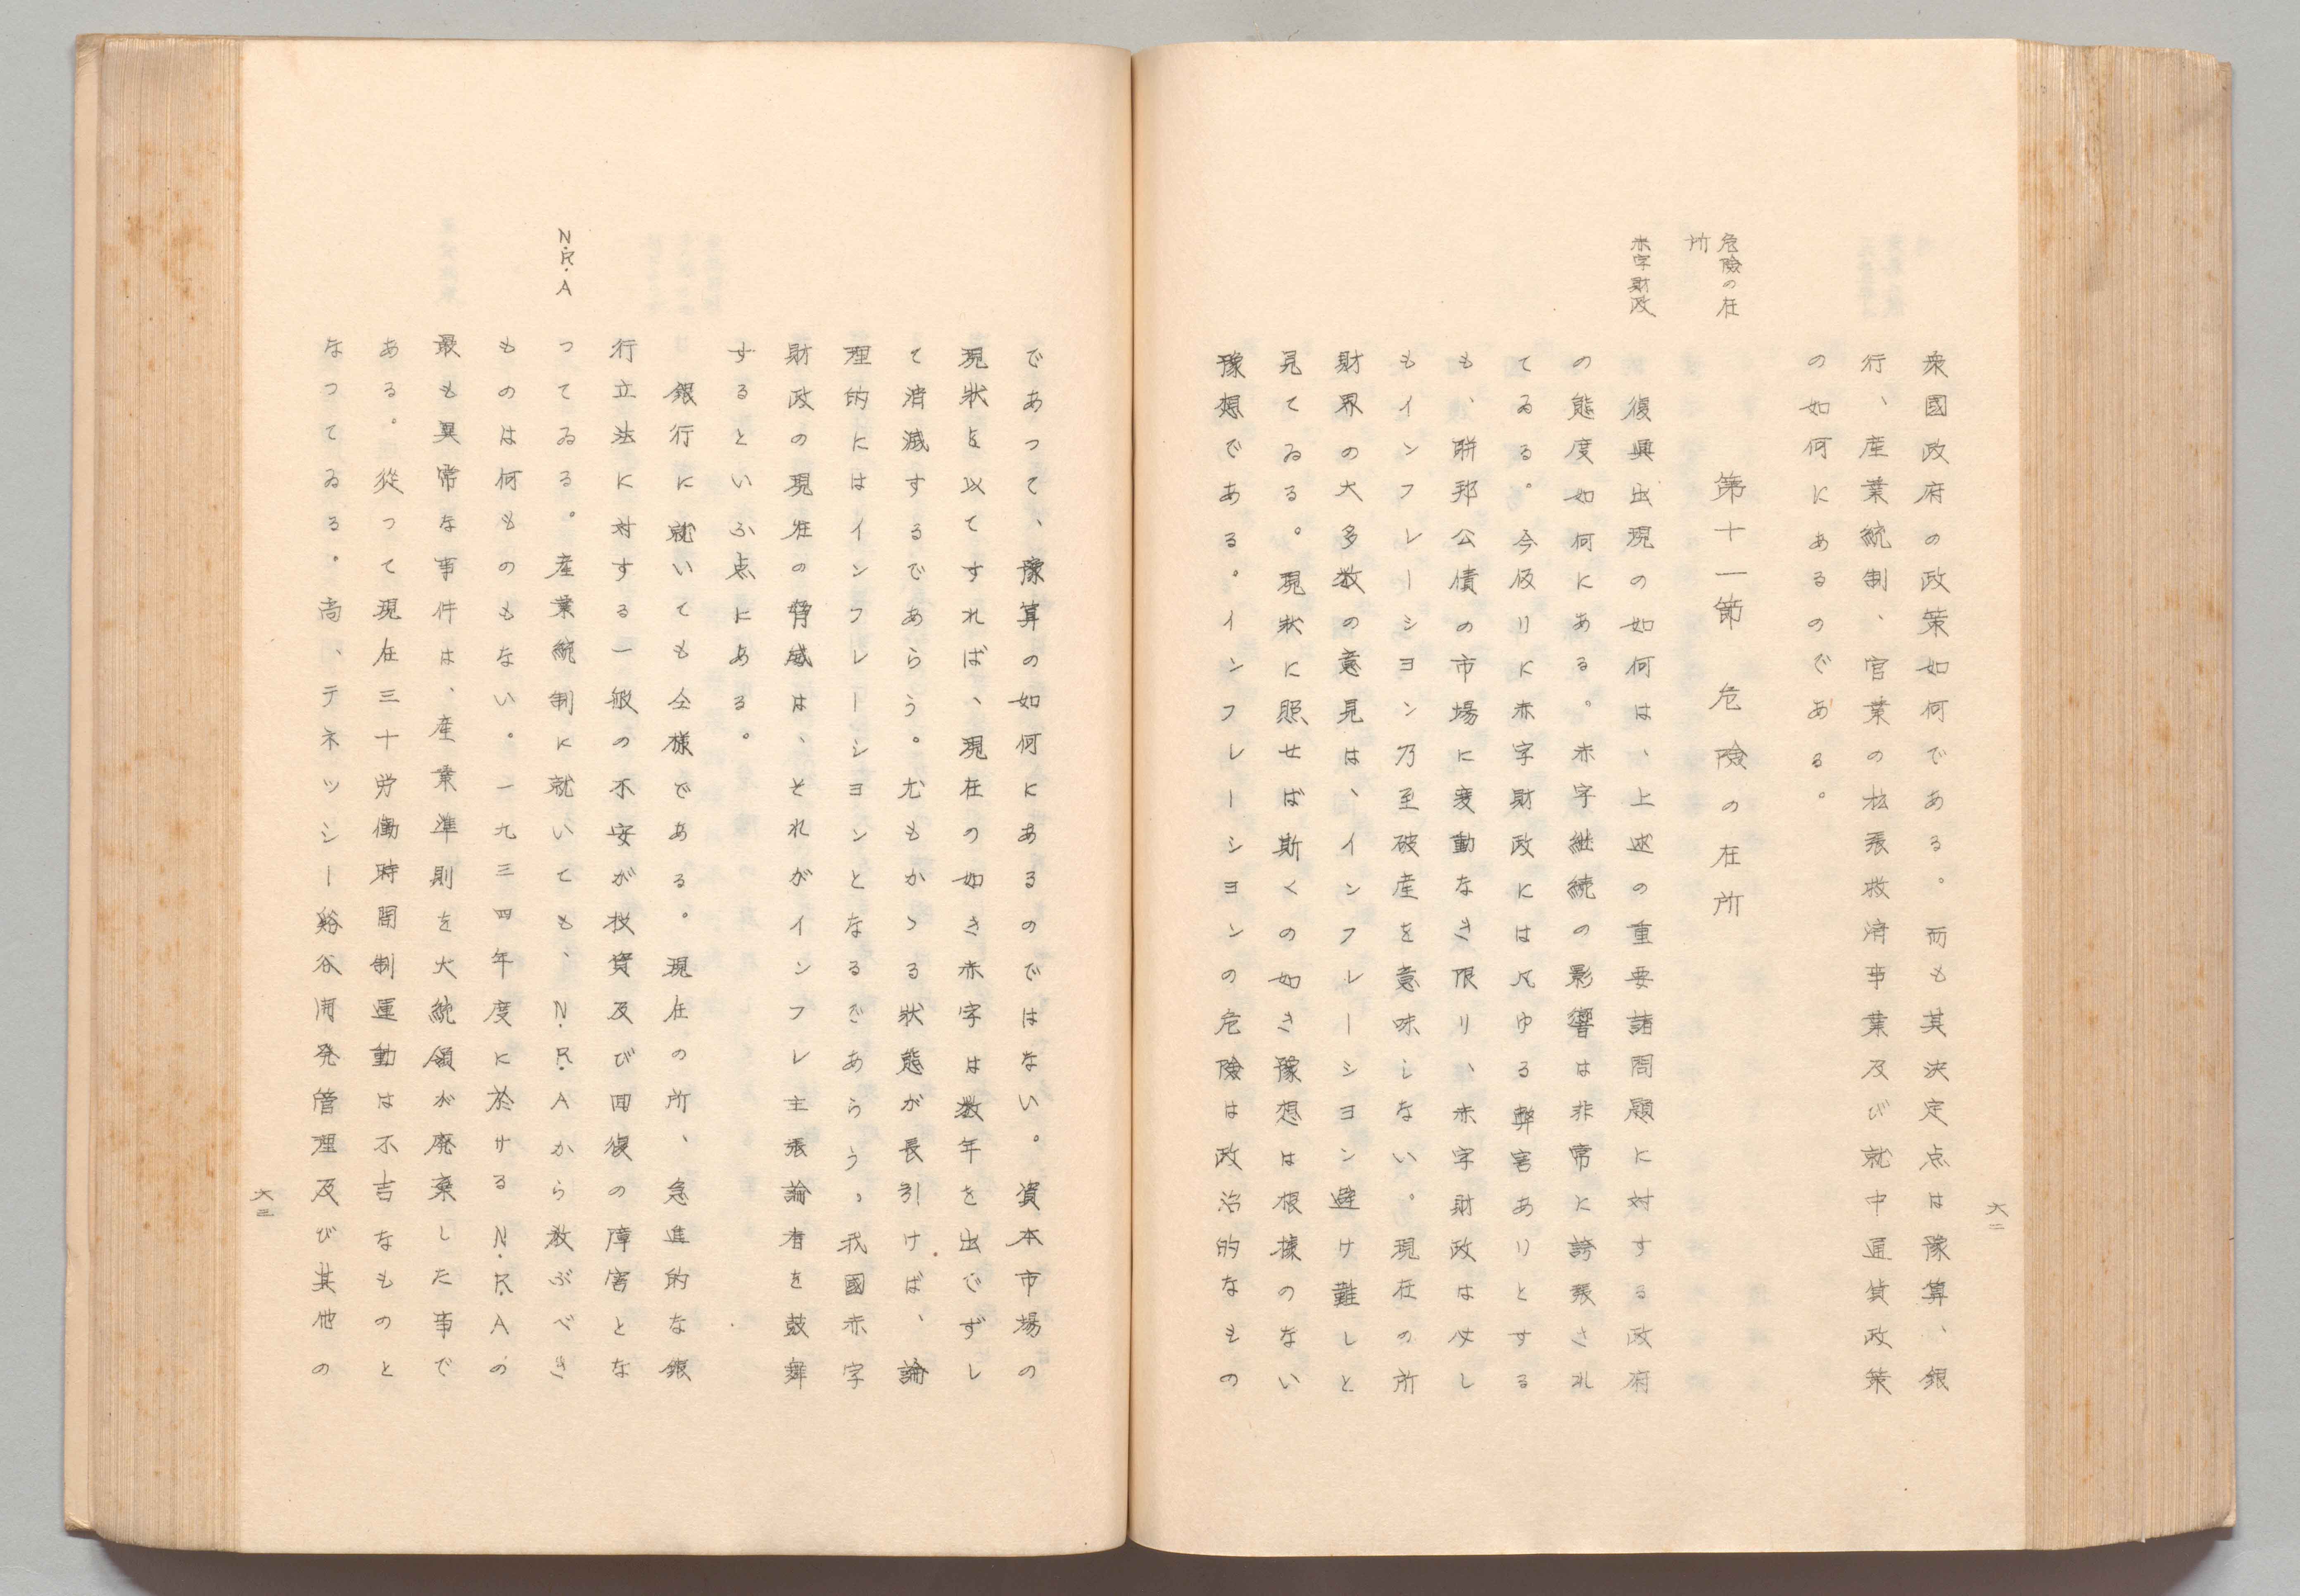 衆國政府の政策如何である。而も其決定点は豫算、銀
行、産業統制、官業の拡張救済事業及び就中通貨政策
の如何にあるのである。
危險の在
所
第十一節 危險の在所
赤字財政
復興出現の如何は、上述の重要諸問題に対する政府
の態度如何にある。赤字継続の影響は非常に誇張され
てゐる。今仮りに赤字財政には凡ゆる弊害ありとする
も、聯邦公債の市場に変動なき限り、赤字財政は必しし
もインフレーション乃至破産を意味しない。現在の所
財界の大多数の意見は、インフレーション避け難しと
見てゐる。現状に照せば斯くの如き豫想は根據のない
豫想である。インフレーションの危險は政治的なもの
六二
であって、豫算の如何にあるのではない。資本市場の
現狀を以てすれば、現在の如き赤字は数年を出でずし
て済滅するであらう。尤もかゝる狀態が長引けば、論
理的にはインフレーションとなるであらう。我國赤字
財政の現在の脅威は、それがインフレ主張論者を鼓舞
するといふ点にある。
銀行に就いても仝様である。現在の所、急進的な銀
行立法に対する一般の不安が投資及び回復の障害とな
N.R.A
ってゐる。産業統制に就いても、N.R.Aから救ぶべき
ものは何ものもない。一九三四年度に於けるN.R.Aの
最も異常な事件は、産業準則を大統領が廃棄した事で
ある。從って現在三十労働時間制運動は不吉なものと
なってゐる。尚、テネッシー谿谷開発管理及び其他の
六三